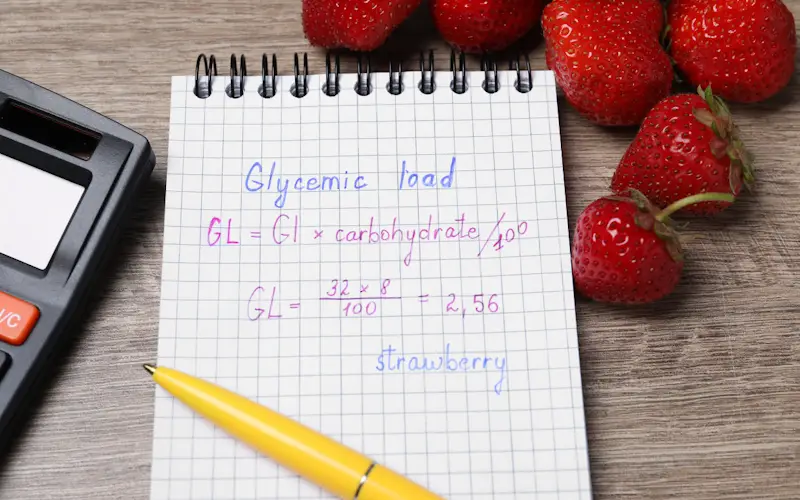 Glycemic load
GL = GI × carbohydrate/100
GL = 32 × 8 / 100 = 2,56
strawberry